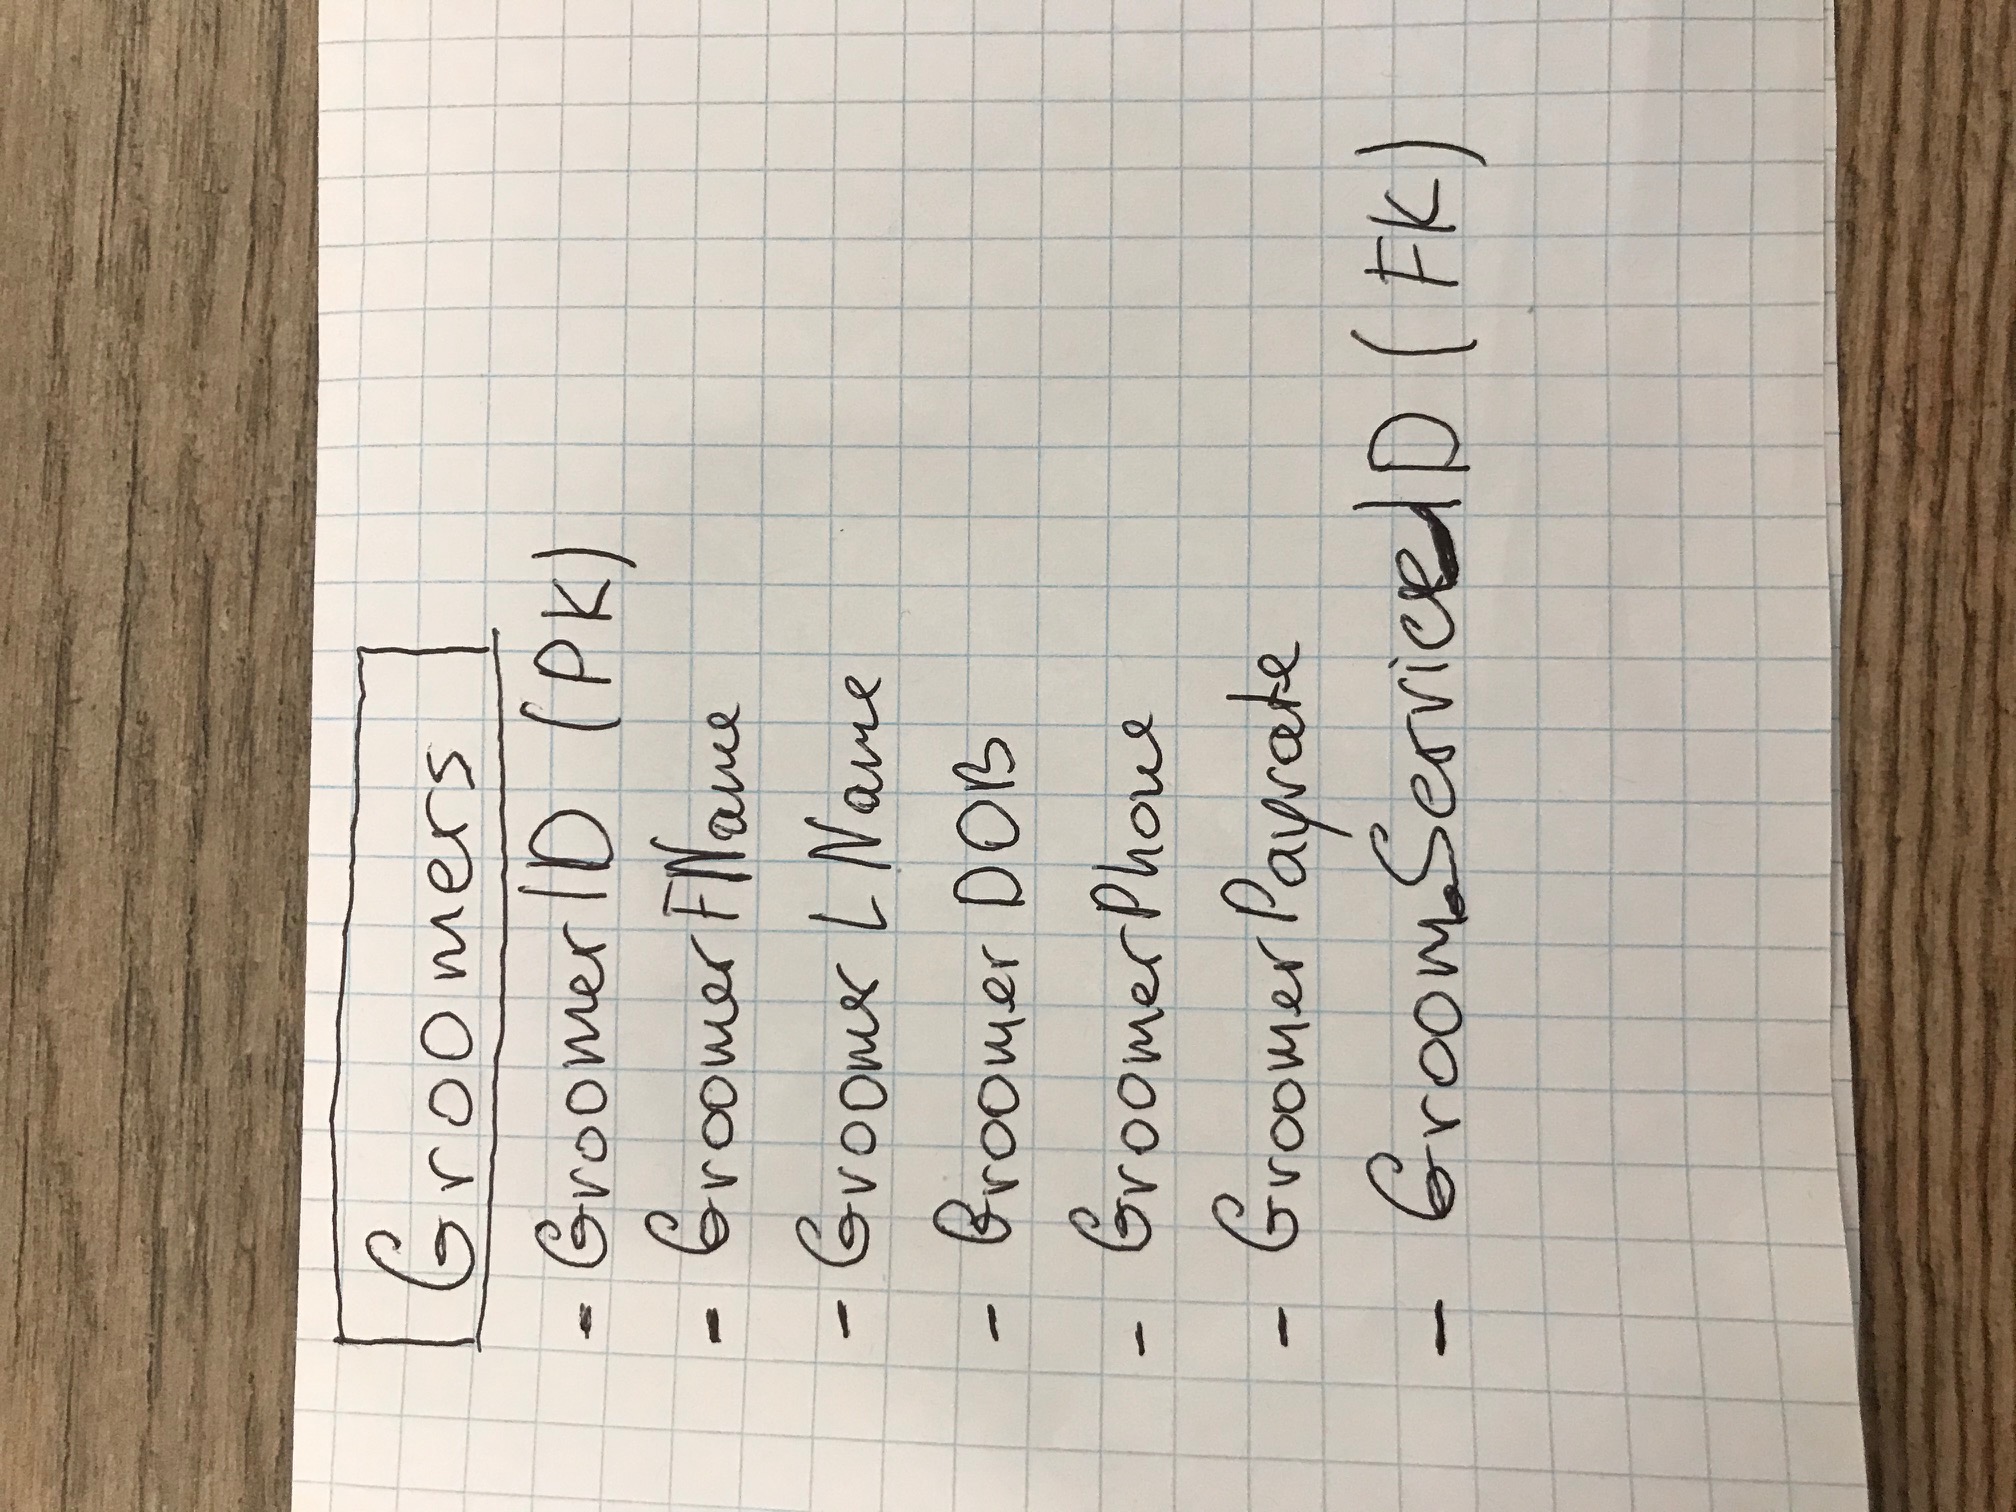 Groomers
- GroomerID (PK)
- GroomerFName
- GroomerLName
- GroomerDOB
- GroomerPhone
- GroomerPayrate
- GroomServiceID (FK)